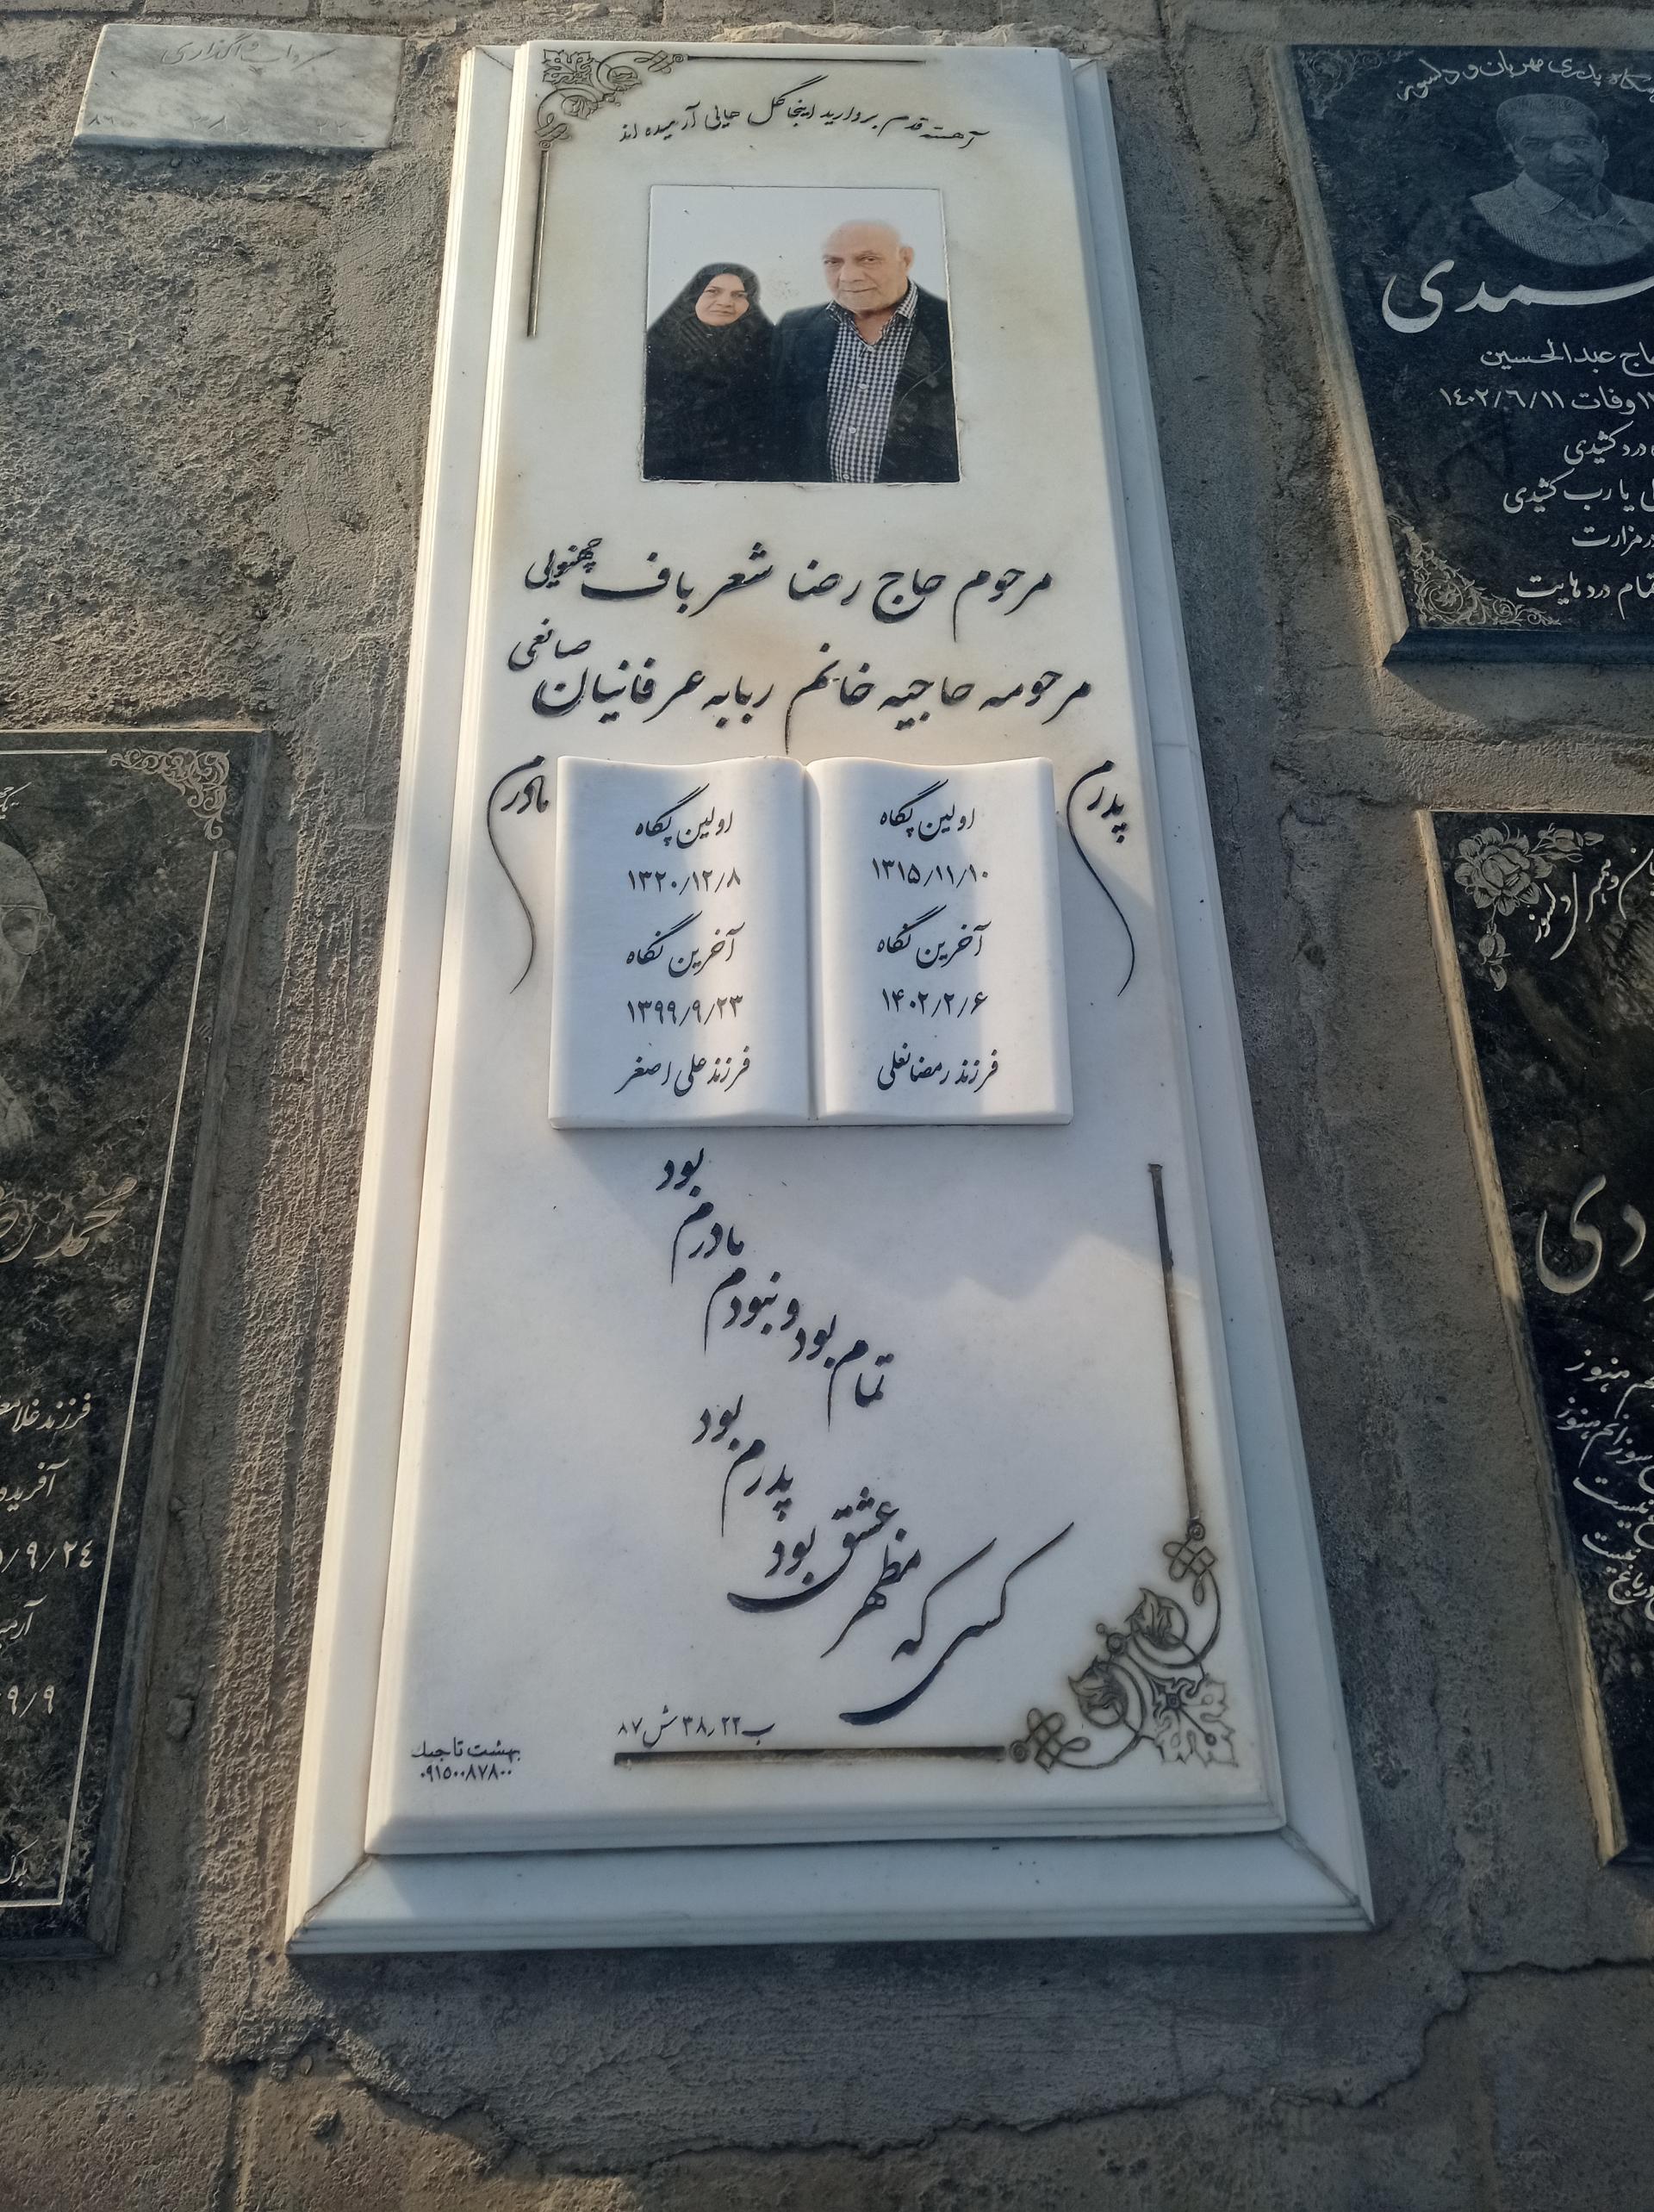 آهسته قدم بردارید اینجا گل هایی آرمیده اند
مرحوم حاج رضا شعرباف چهنویی
مرحومه حاجیه خانم ربابه عرفانیان صانعی
پدرم
اولین پگاه
۱۳۱۵/۱۱/۱۰
آخرین نگاه
۱۴۰۲/۲/۶
فرزند رمضانعلی
مادرم
اولین پگاه
۱۳۲۰/۱۲/۸
آخرین نگاه
۱۳۹۹/۹/۲۳
فرزند علی اصغر
کسی که مظهر عشق بود پدرم بود
تمام بود و نبودم مادرم بود
ب ۳۸/۲۲ ش ۸۷
بهشت تاجیک
۰۹۱۵۰۰۸۷۸۰۰
پدری مهربان و دلسوز
عبدالحسین
وفات ۱۴۰۲/۶/۱۱
درد کشیدی
یا رب کشیدی
مزارت
تمام درد هایت
دلسوز
هنوز
هنوز
نیست
نیست
محمد
فرزند
۹/۲۴
۹/۹
بلوک